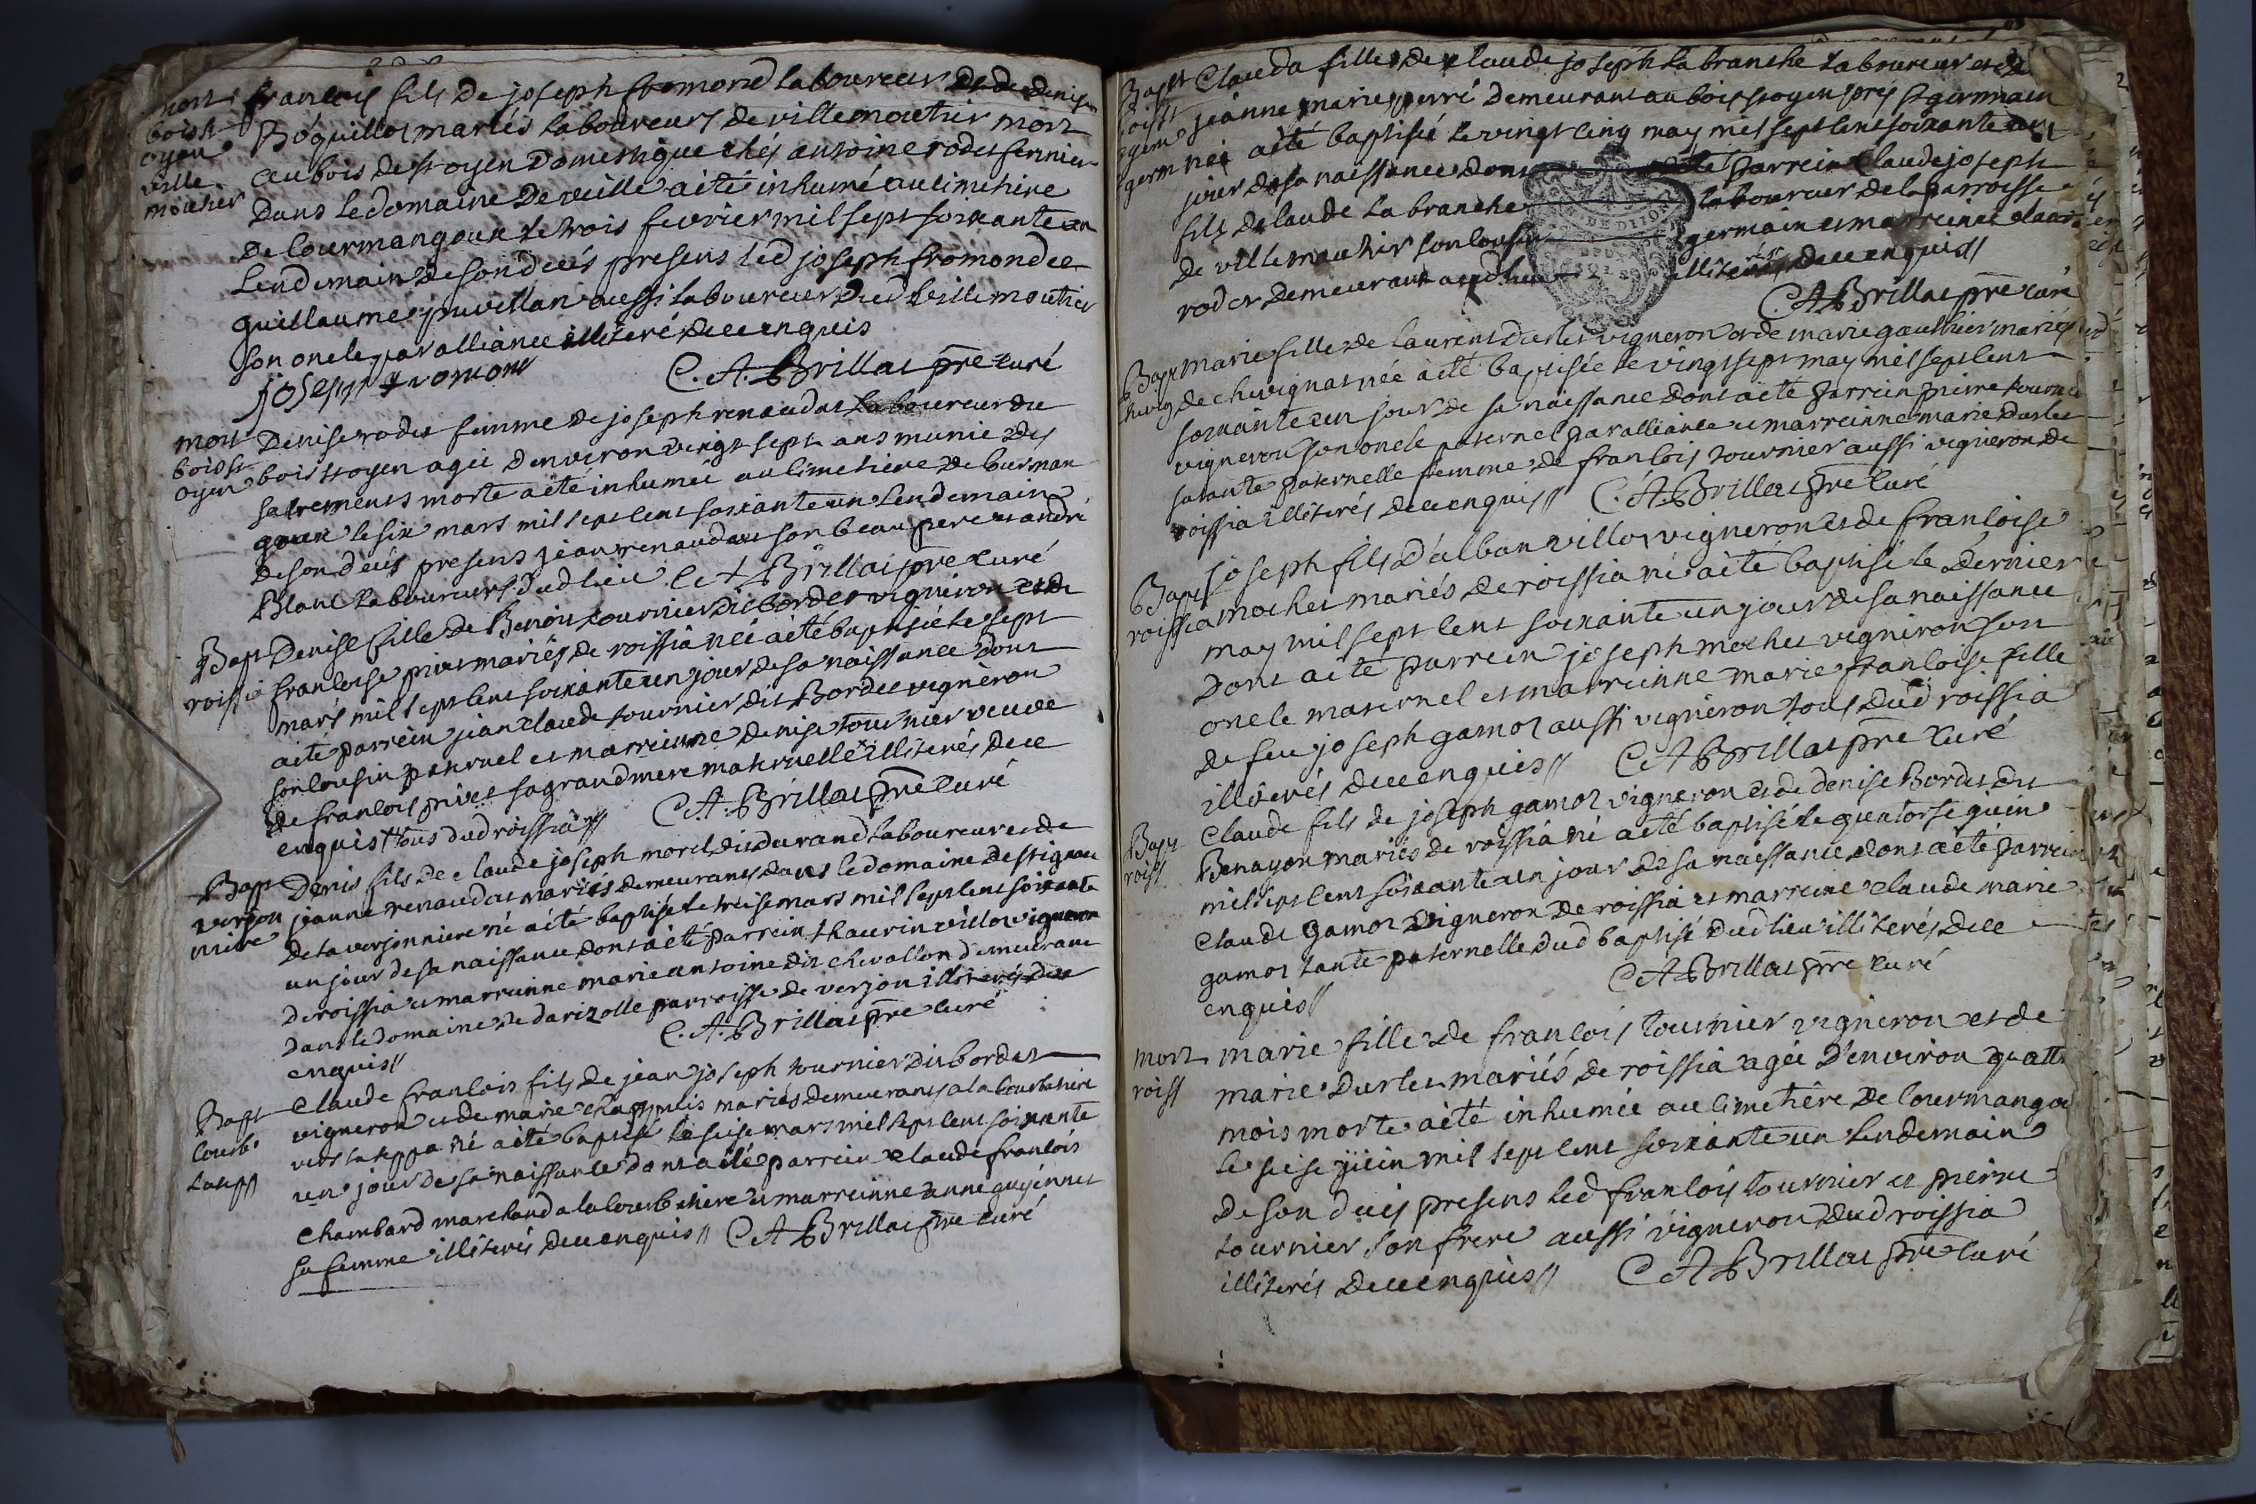 mort
bois st
oyen
ville
moutier
francois fils de joseph fromond laboureur et de denise
Boquillot mariés laboureurs de villemoutier mort
au bois de st oyen domestique chés antoine rodet fermier
dans le domaine de veille aété inhumé au cimetiere
de Courmangoux le trois fevrier mil sept soixante un
lendemain de son decés presens led joseph fromond et
guillaume puvillan aussi laboureur dud villemoutier
son oncle par alliance illiteré de ce enquis
joseph fromont C. A. Brillat pre curé
mort
bois st
oyen
Denise rodet femme de joseph renaudat laboureur du
bois st oyen agée denviron vingt sept ans munie des
sacremens morte aété inhumée au cimetiere de Courman
goux le six mars mil sept cent soixante un lendemain
de son decés presens jean renaudat son beau pere et andré
Blanc laboureurs dud lieu C A Brillat pre curé
Bapt
roissia
Denise fille de Benoit tournier dit bordet vigneron et de
francoise pivet mariés de roissia née aété baptisée le sept
mars mil sept cent soixante un jour de sa naissance dont
aété parrein jean claude tournier dit Bordet vigneron
son cousin paternel et marreinne denise tournier veuve
de francois pivet sa grand mere maternelle illiterés de ce
enquis tous dud roissia C. A. Brillat pre curé
Bapt
verjon
niere
Denis fils de claude joseph morel dit durand laboureur et de
jeanne renaudat mariés demeurants dans le domaine destignat
de la verjonniere né aété baptisé le treise mars mil sept cent soixante
un jour de sa naissance dont aété parrein thaurin villot vigneron
de roissia et marreinne marie antoine dit chevallon demeurant
dans le domaine de darizolle parroisse de verjon illiterés de ce
enquis C. A. Brillat pre curé
Bapt
Courb
Claude francois fils de jean joseph tournier dit bordet
vigneron et de marie chappuis mariés demeurants a la Courbatiere
vers la teppa né aété baptisé le seise mars mil sept cent soixante
un jour de sa naissance dont aété parrein claude francois
chambard marchand a la Courbatiere et marreinne anne guyennet
sa femme illiterés de ce enquis C A Brillat pre curé
Bapt
oisst
germ
Clauda fille de claude joseph la branche laboureur et de
jeanne marie perré demeurant au bois st oyen pres st germain
née aété baptisée le vingt cinq may mil sept cent soixante un
jour de sa naissance dont aété parrein claude joseph
fils de claude la branche laboureur de la parroisse
de villemoutier son cousin germain et marreinne clauda
rodet demeurant aud lieu illiterés de ce enquis
C A Brillat pre curé
Bapt
chevig
marie fille de laurent durlet vigneron et de marie gauthier mariés
de chevignat née aété baptisée le vingt sept may mil sept cent
soixante un jour de sa naissance dont aété parrein pierre tournier
vigneron son oncle paternel par alliance et marreinne marie durlet
sa tante paternelle femme de francois tournier aussi vigneron de
roissia illiterés de ce enquis C. A. Brillat pre curé
Bapt
roissia
joseph fils d'alban villot vigneron et de francoise
mochet mariés de roissia né aété baptisé le dernier
may mil sept cent soixante un jour de sa naissance
dont aété parrein joseph mochet vigneron son
oncle maternel et marreinne marie francoise fille
de feu joseph gamot aussi vigneron tous dud roissia
illiterés de ce enquis C A Brillat pre curé
Bapt
roiss
Claude fils de joseph gamot vigneron et de denise Bordet du
Benayon mariés de roissia né aété baptisé le quatorse juin
mil sept cent soixante un jour de sa naissance dont aété parrein
claude gamot vigneron de roissia et marreine claude marie
gamot tante paternelle dud baptisé dud lieu illiterés de ce
enquis C A Brillat pre curé
mort
roiss
marie fille de francois tournier vigneron et de
marie durlet mariés de roissia agée d'environ quatre
mois morte aété inhumée au cimetiere de Courmangoux
le seise juin mil sept cent soixante un lendemain
de son decés presens led francois tournier et pierre
tournier son frere aussi vigneron dud roissia
illiterés de ce enquis C A Brillat pre curé